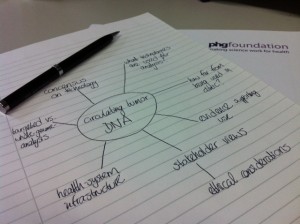 phgfoundation
making science work for health
consensus
on terminology
what techniques
are used for
analysis?
how far from
being used in
clinic?
targeted vs.
whole genome
analysis
circulating tumour
DNA
use
stakeholder views
ethical considerations
health system
infrastructure